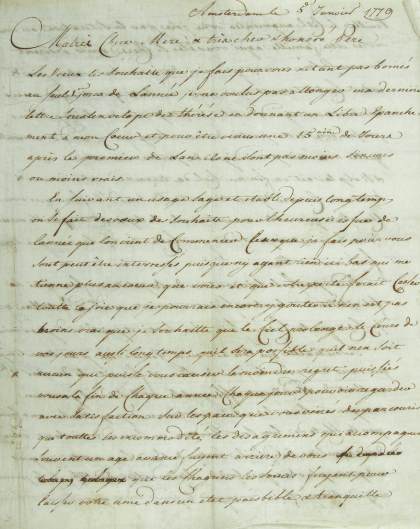 Amsterdam le 5e Janvier 1779
Chere Mere, & tres cher & honoré Pere
Les Voeux & souhaits que je fais pour vous n'étant pas bornés
au seul jour de l'année je ne voulus pas allonger ma derniere
lettre en donnant un libre Epanche
ment a mon Coeur et peut être viens une 15aine de Jours
après les premiers de l'an ils ne sont pas moins sinceres
ou moins vrais
En suivant un usage sage et établi depuis longtemps
on se fait des voeux & souhaits pour l'heureuse issue de
l'année que l'on vient de Commencer je fais pour vous
sont peut être interessés puisque n'y ayant rien ici bas qui me
tienne plus au coeur que vous et que votre perte feroit Cesser
toute la joie que je pourrois encore y gouter il n'en est pas
moins vrai que je souhaitte que le Ciel prolonge le Cours de
vos jours aussi longtemps qu'il sera possible qu'il n'en soit
aucun que puisse vous causer le moindre regret; puissiés
vous a la fin de Chaque année Chaque jour pouvoir regarder
avec satisfaction sur les pas que vous venés de parcourir
que toutes les incommodités, les desagremens qui accompagnent
souvent un age avancé soyent arriere de vous
que les Chagrins les soucis fuyent pour
laisser votre ame dans un etat paisible & tranquille